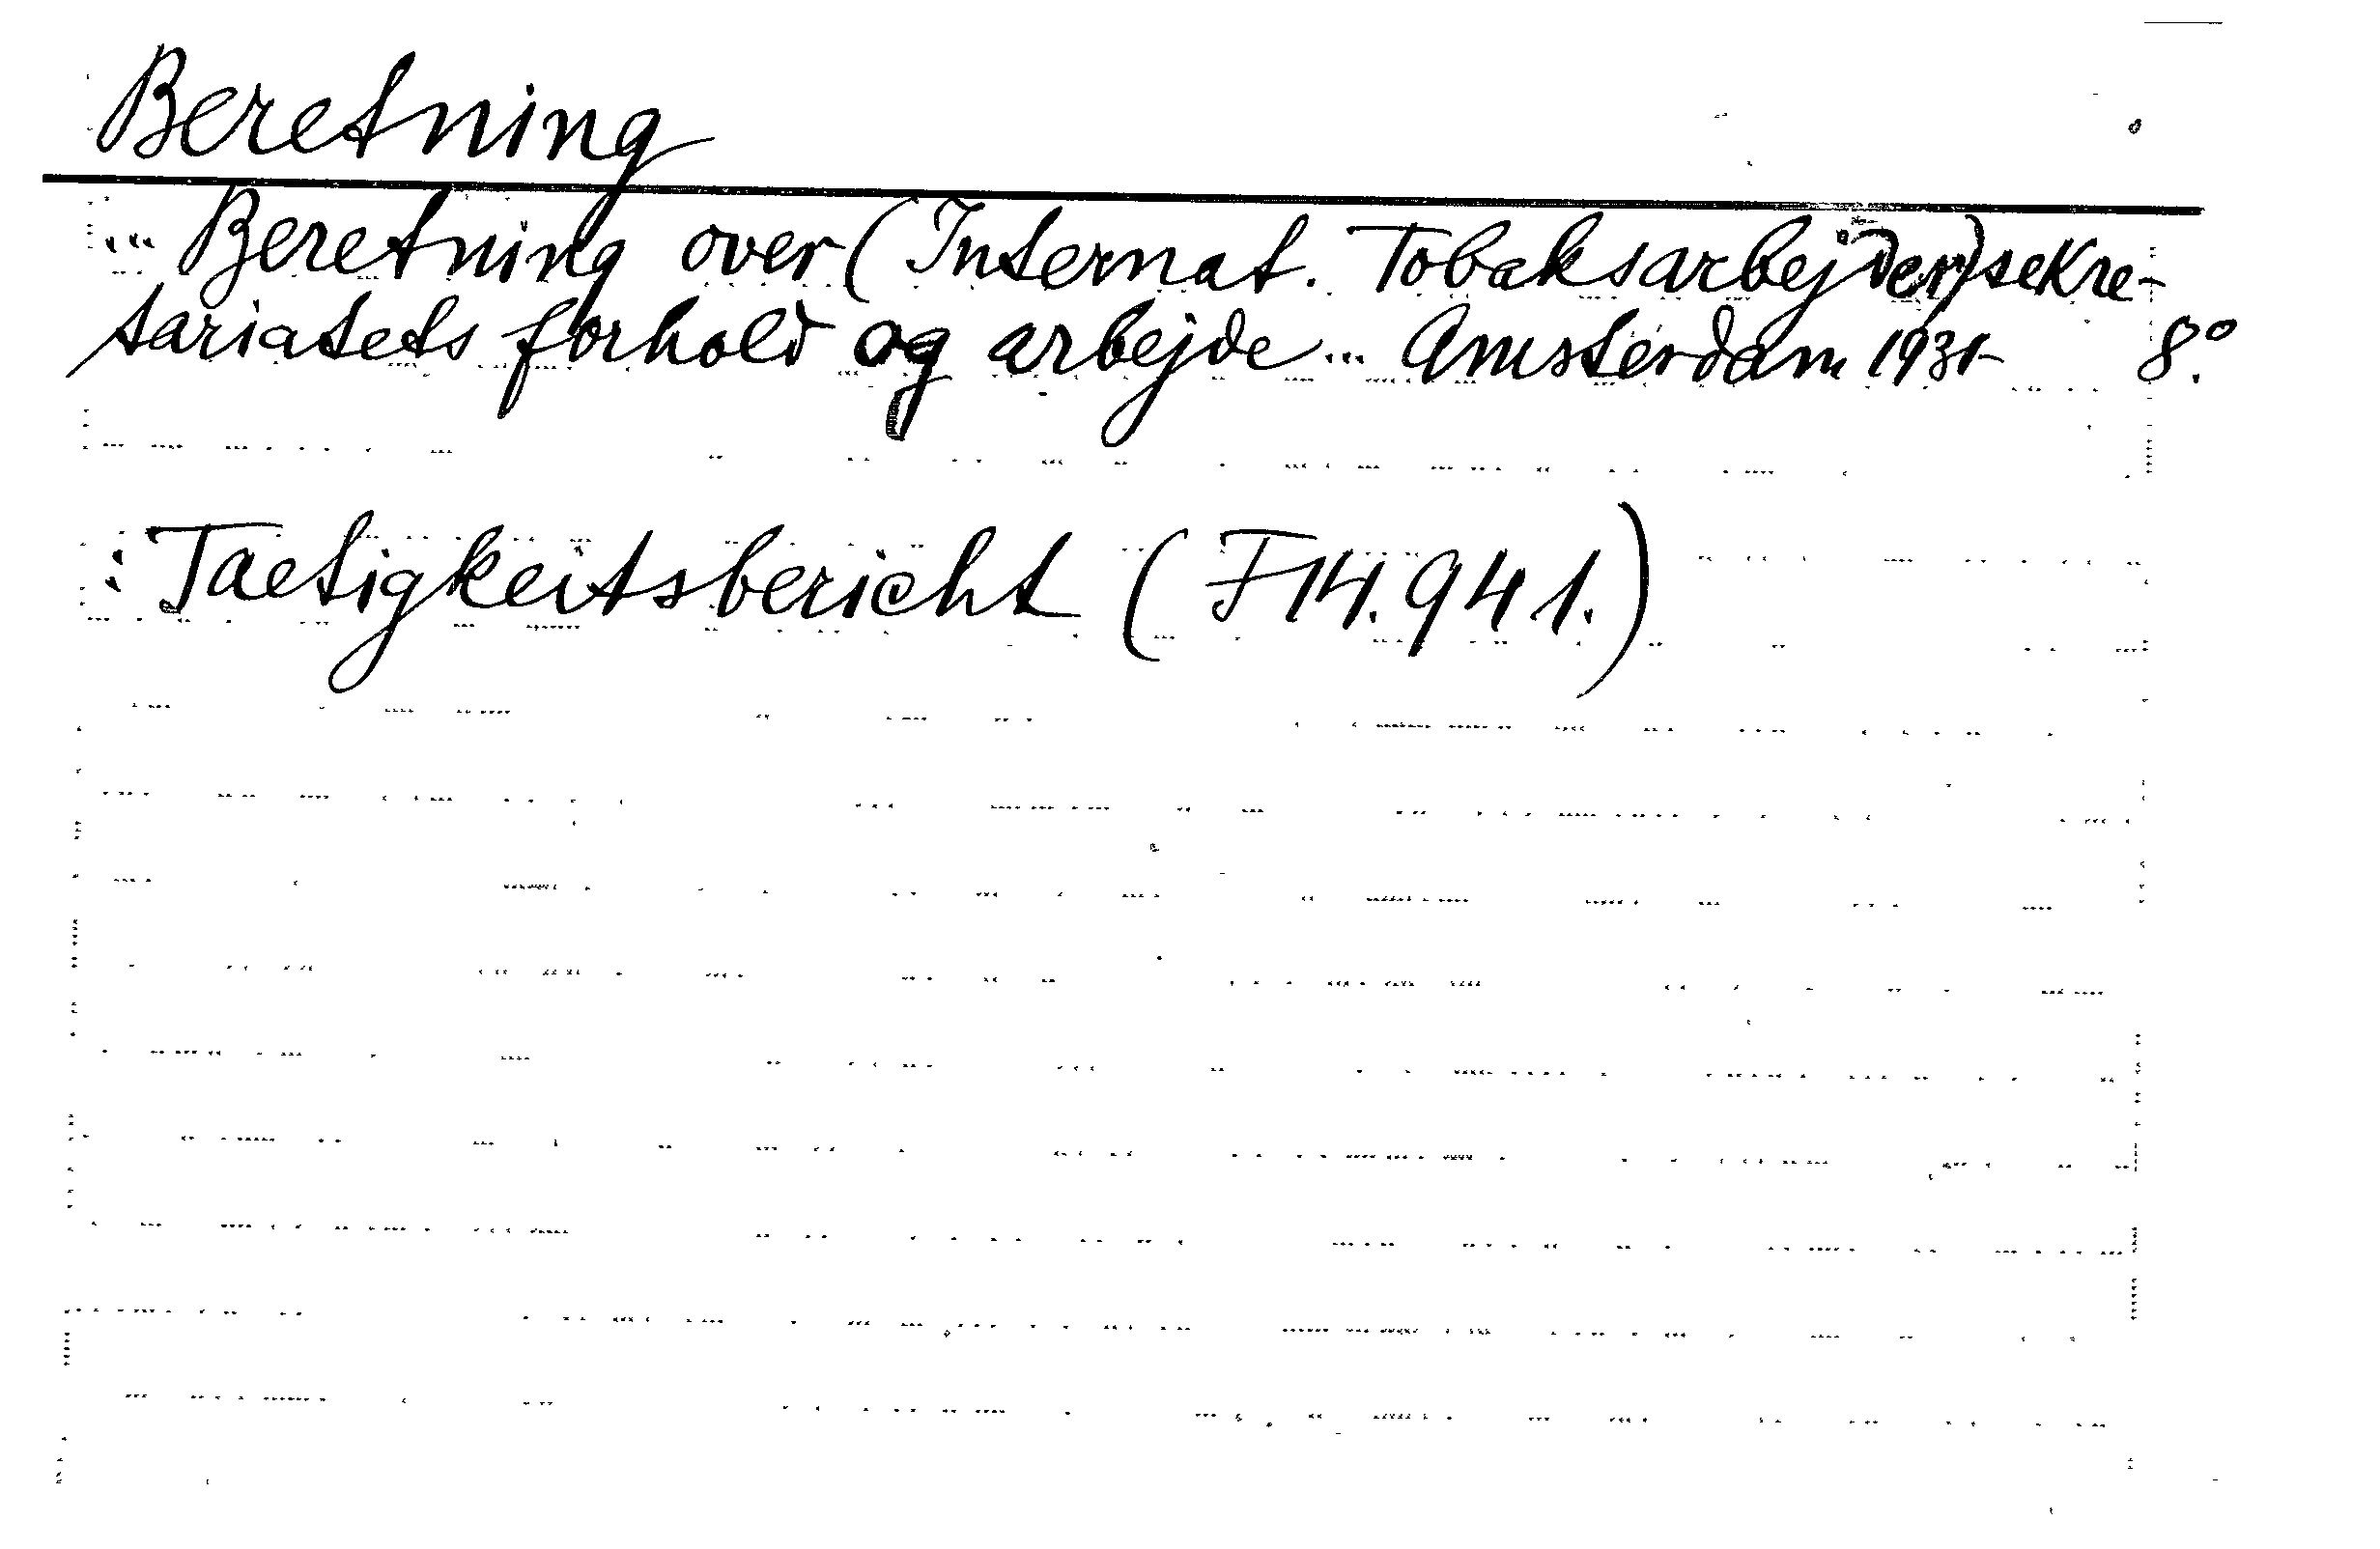 Beretning
... Beretning over (Internat. Tobaksarbejder)sekre-
tariatets forhold og arbejde... Amsterdam 1931- 8°.
: Taetigkeitsbericht (F 14.941.)